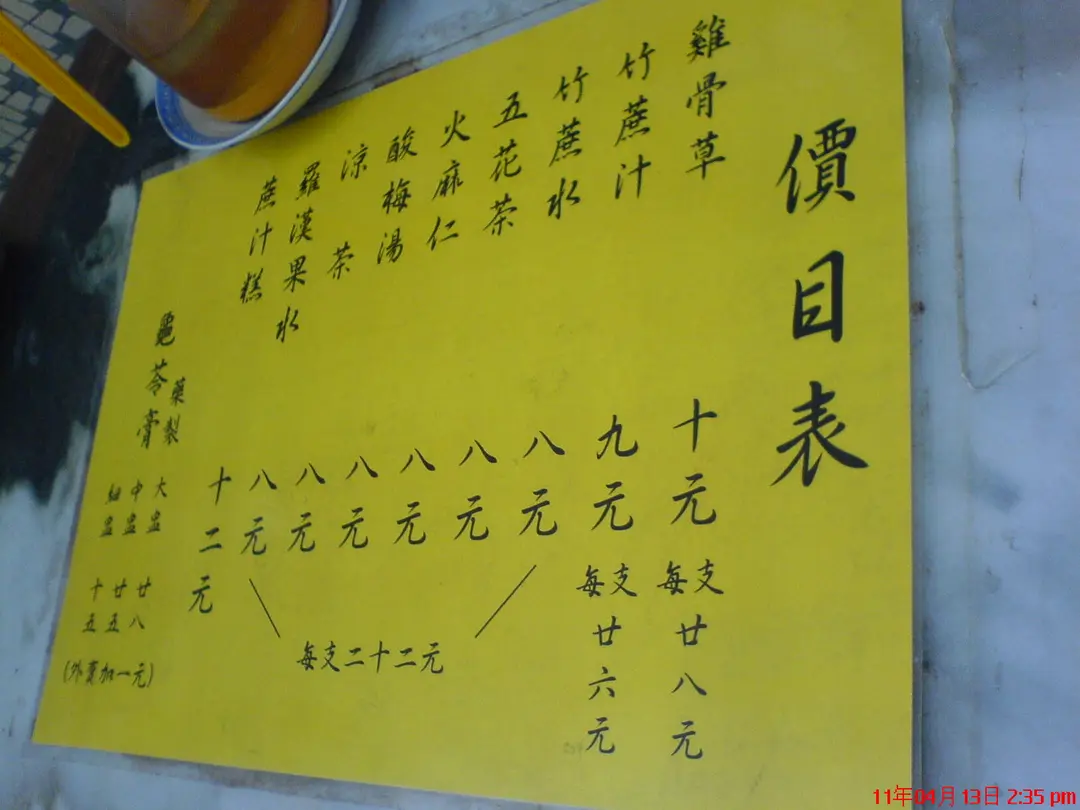 價目表
雞骨草 十元 每支廿八元
竹蔗汁 九元 每支廿六元
竹蔗水 八元
五花茶 八元
火麻仁 八元
酸梅湯 八元
涼茶 八元
羅漢果水 八元
每支二十二元
蔗汁糕 十二元
藥製
龜苓膏
大盅 廿八
中盅 廿五
細盅 十五
(外賣加一元)
11年04月13日 2:35 pm